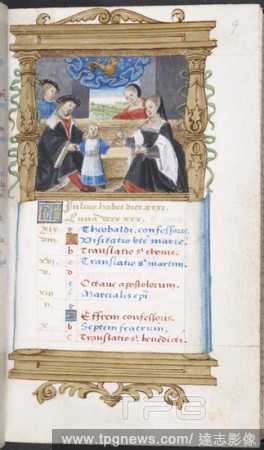 9
Julius habet dies xxxi.
Luna vero xxx.
xix g Theobaldi. confessoris.
viii. Visitatio bte marie.
b Translatio st thome.
xvi. c Translatio st martini.
v. d
e
xiii f Octave apostolorum.
ii. g Marcialis epi
Effrem confessoris.
x. b Septem fratrum.
c Translatio st benedicti.
TPG
www.tpgnews.com/ 達志影像